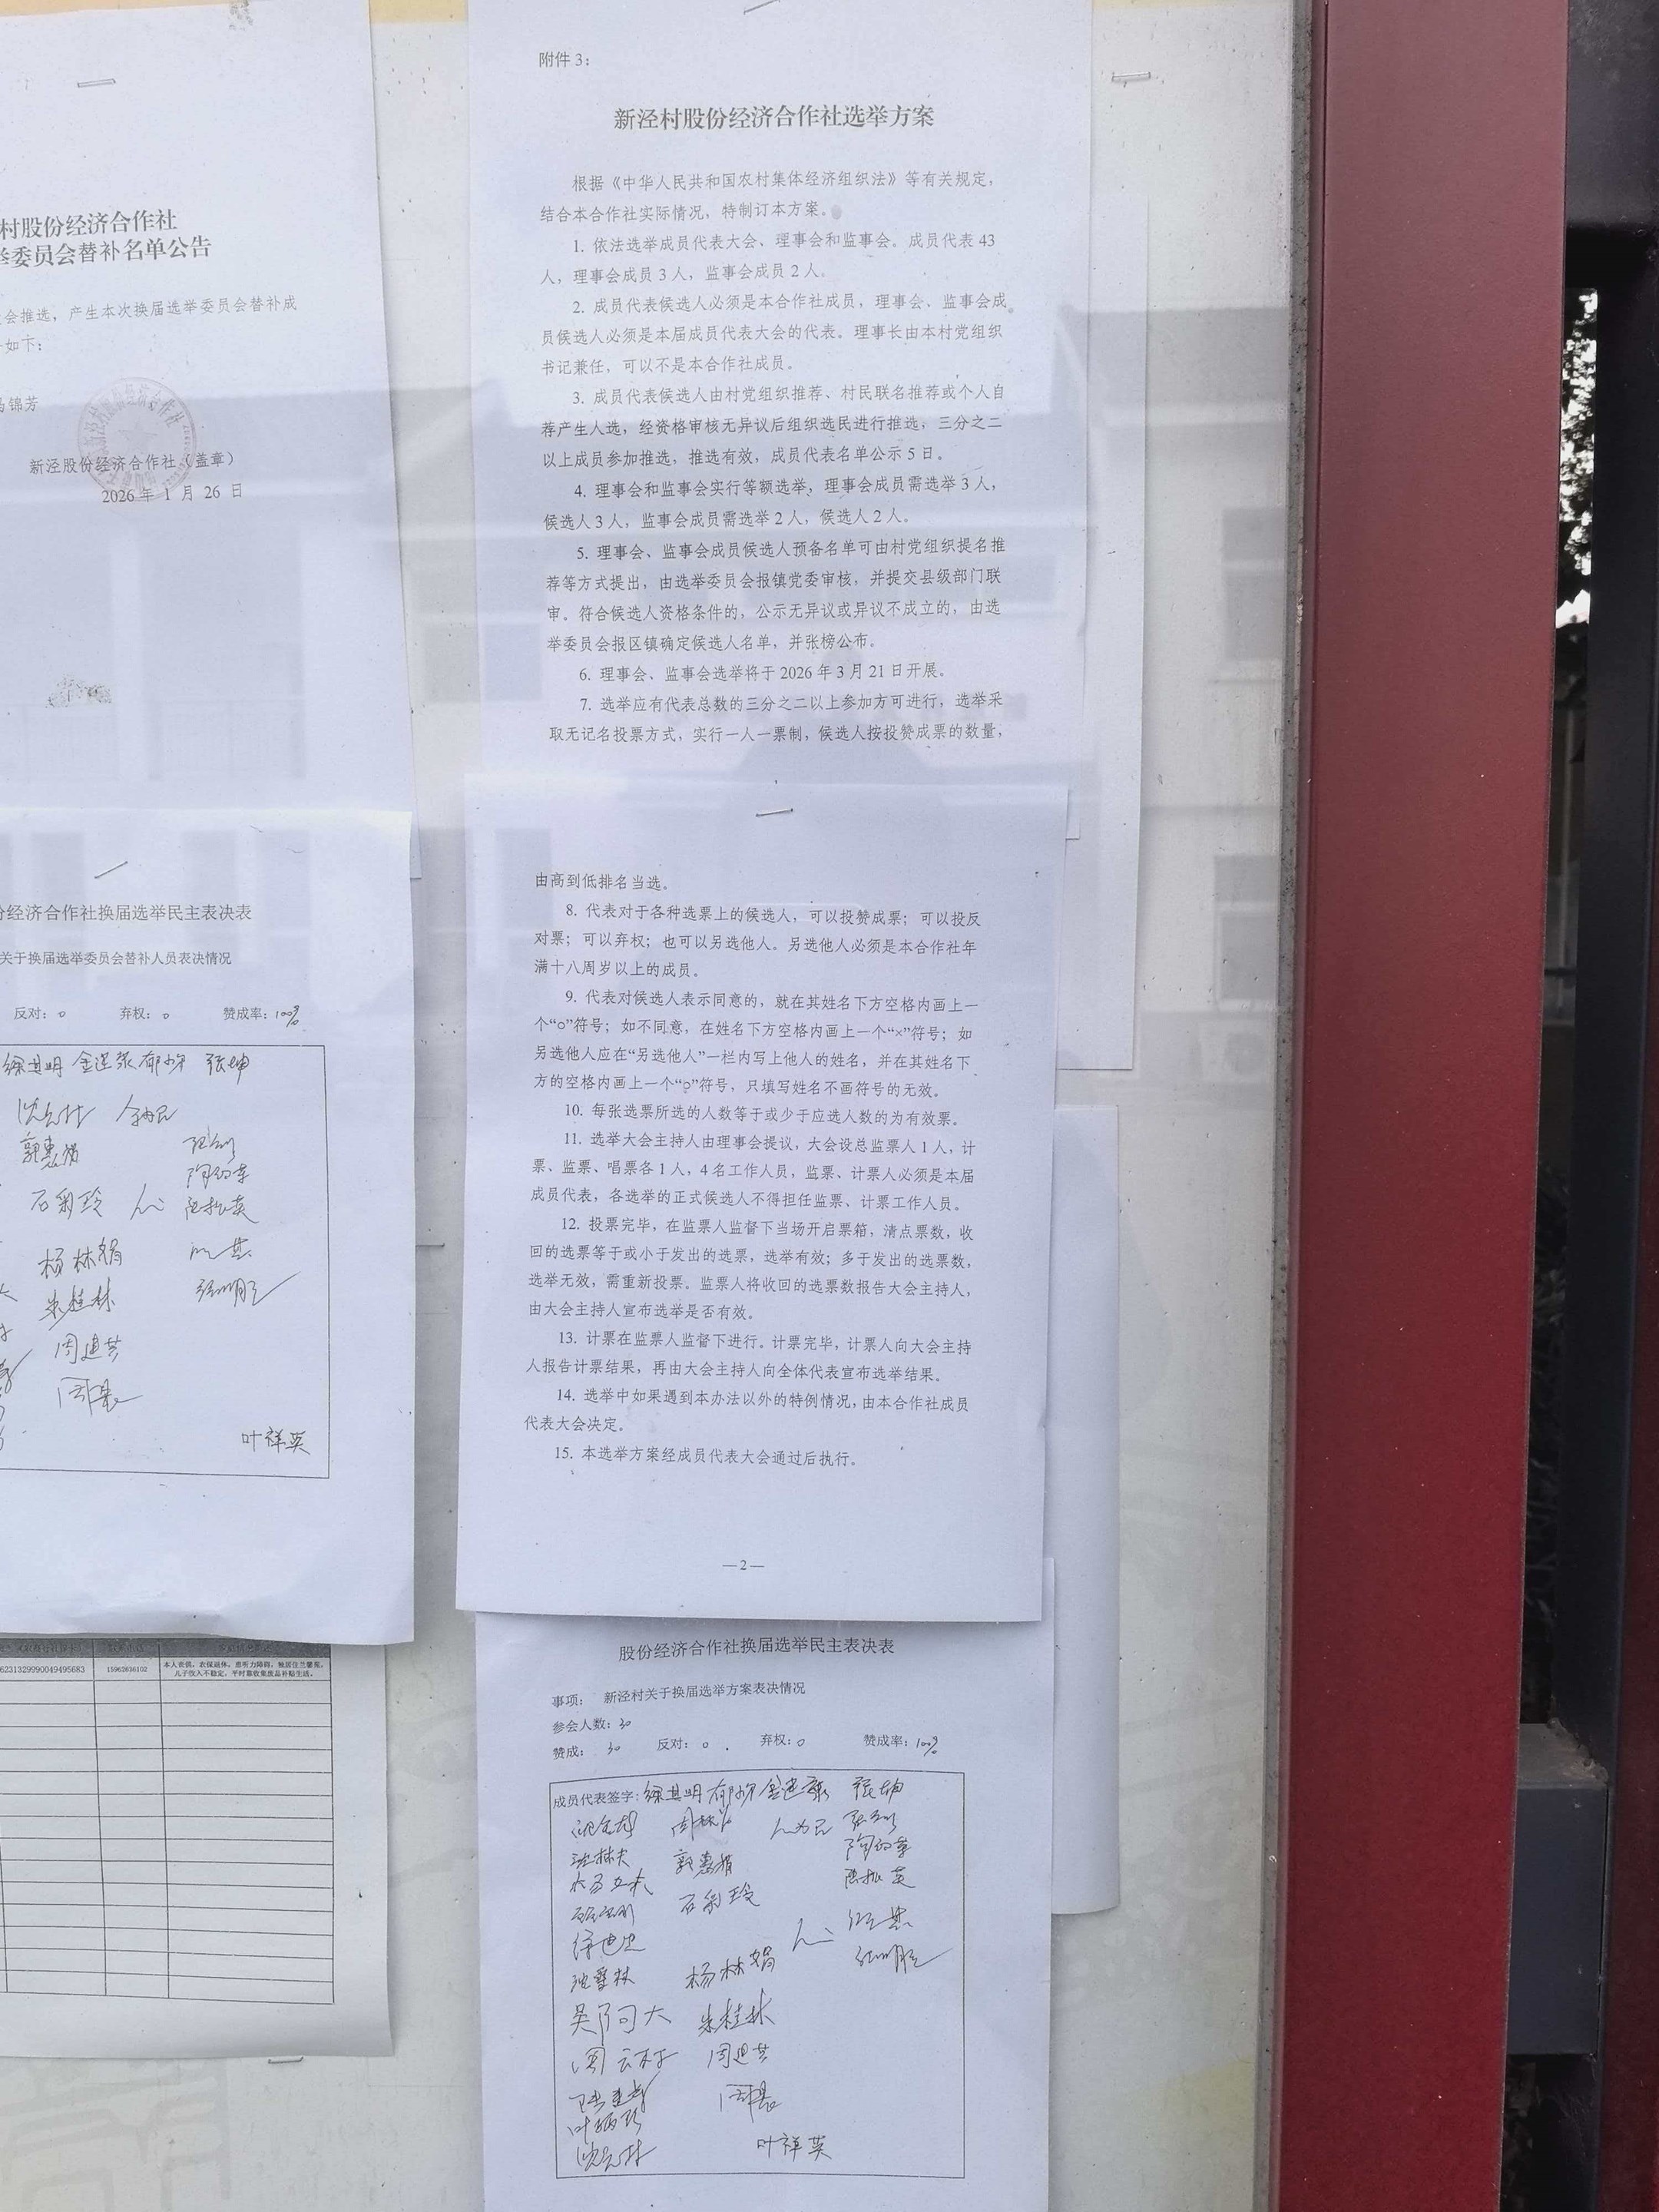 村股份经济合作社
举委员会替补名单公告
会推选，产生本次换届选举委员会替补成
如下：
锦芳
新泾股份经济合作社（盖章）
2026年1月26日
份经济合作社换届选举民主表决表
关于换届选举委员会替补人员表决情况
反对：0 弃权：0 赞成率：100%
徐其明 张坤
郭惠娟
石彩玲
杨林娟
朱桂林
周迎芬
叶祥英
623132999004949568​3 15962636102 本人丧偶，农保退休，患听力障碍，独居住兰馨苑，
儿子收入不稳定，平时靠收集废品补贴生活。
附件 3：
新泾村股份经济合作社选举方案
根据《中华人民共和国农村集体经济组织法》等有关规定，
结合本合作社实际情况，特制订本方案。
1. 依法选举成员代表大会、理事会和监事会。成员代表 43
人，理事会成员 3 人，监事会成员 2 人。
2. 成员代表候选人必须是本合作社成员，理事会、监事会成
员候选人必须是本届成员代表大会的代表。理事长由本村党组织
书记兼任，可以不是本合作社成员。
3. 成员代表候选人由村党组织推荐、村民联名推荐或个人自
荐产生人选，经资格审核无异议后组织选民进行推选，三分之二
以上成员参加推选，推选有效，成员代表名单公示 5 日。
4. 理事会和监事会实行等额选举，理事会成员需选举 3 人，
候选人 3 人，监事会成员需选举 2 人，候选人 2 人。
5. 理事会、监事会成员候选人预备名单可由村党组织提名推
荐等方式提出，由选举委员会报镇党委审核，并提交县级部门联
审。符合候选人资格条件的，公示无异议或异议不成立的，由选
举委员会报区镇确定候选人名单，并张榜公布。
6. 理事会、监事会选举将于 2026 年 3 月 21 日开展。
7. 选举应有代表总数的三分之二以上参加方可进行，选举采
取无记名投票方式，实行一人一票制，候选人按投赞成票的数量，
由高到低排名当选。
8. 代表对于各种选票上的候选人，可以投赞成票；可以投反
对票；可以弃权；也可以另选他人。另选他人必须是本合作社年
满十八周岁以上的成员。
9. 代表对候选人表示同意的，就在其姓名下方空格内画上一
个“o”符号；如不同意，在姓名下方空格内画上一个“×”符号；如
另选他人应在“另选他人”一栏内写上他人的姓名，并在其姓名下
方的空格内画上一个“o”符号，只填写姓名不画符号的无效。
10. 每张选票所选的人数等于或少于应选人数的为有效票。
11. 选举大会主持人由理事会提议，大会设总监票人 1 人，计
票、监票、唱票各 1 人，4 名工作人员，监票、计票人必须是本届
成员代表，各选举的正式候选人不得担任监票、计票工作人员。
12. 投票完毕，在监票人监督下当场开启票箱，清点票数，收
回的选票等于或小于发出的选票，选举有效；多于发出的选票数，
选举无效，需重新投票。监票人将收回的选票数报告大会主持人，
由大会主持人宣布选举是否有效。
13. 计票在监票人监督下进行。计票完毕，计票人向大会主持
人报告计票结果，再由大会主持人向全体代表宣布选举结果。
14. 选举中如果遇到本办法以外的特例情况，由本合作社成员
代表大会决定。
15. 本选举方案经成员代表大会通过后执行。
—2—
股份经济合作社换届选举民主表决表
事项： 新泾村关于换届选举方案表决情况
参会人数：30
赞成： 30 反对：0 弃权：0 赞成率：100%
成员代表签字：徐其明 张坤
郭惠娟
石彩玲
杨林娟
吴阿大 朱桂林
周迎芬
叶祥英